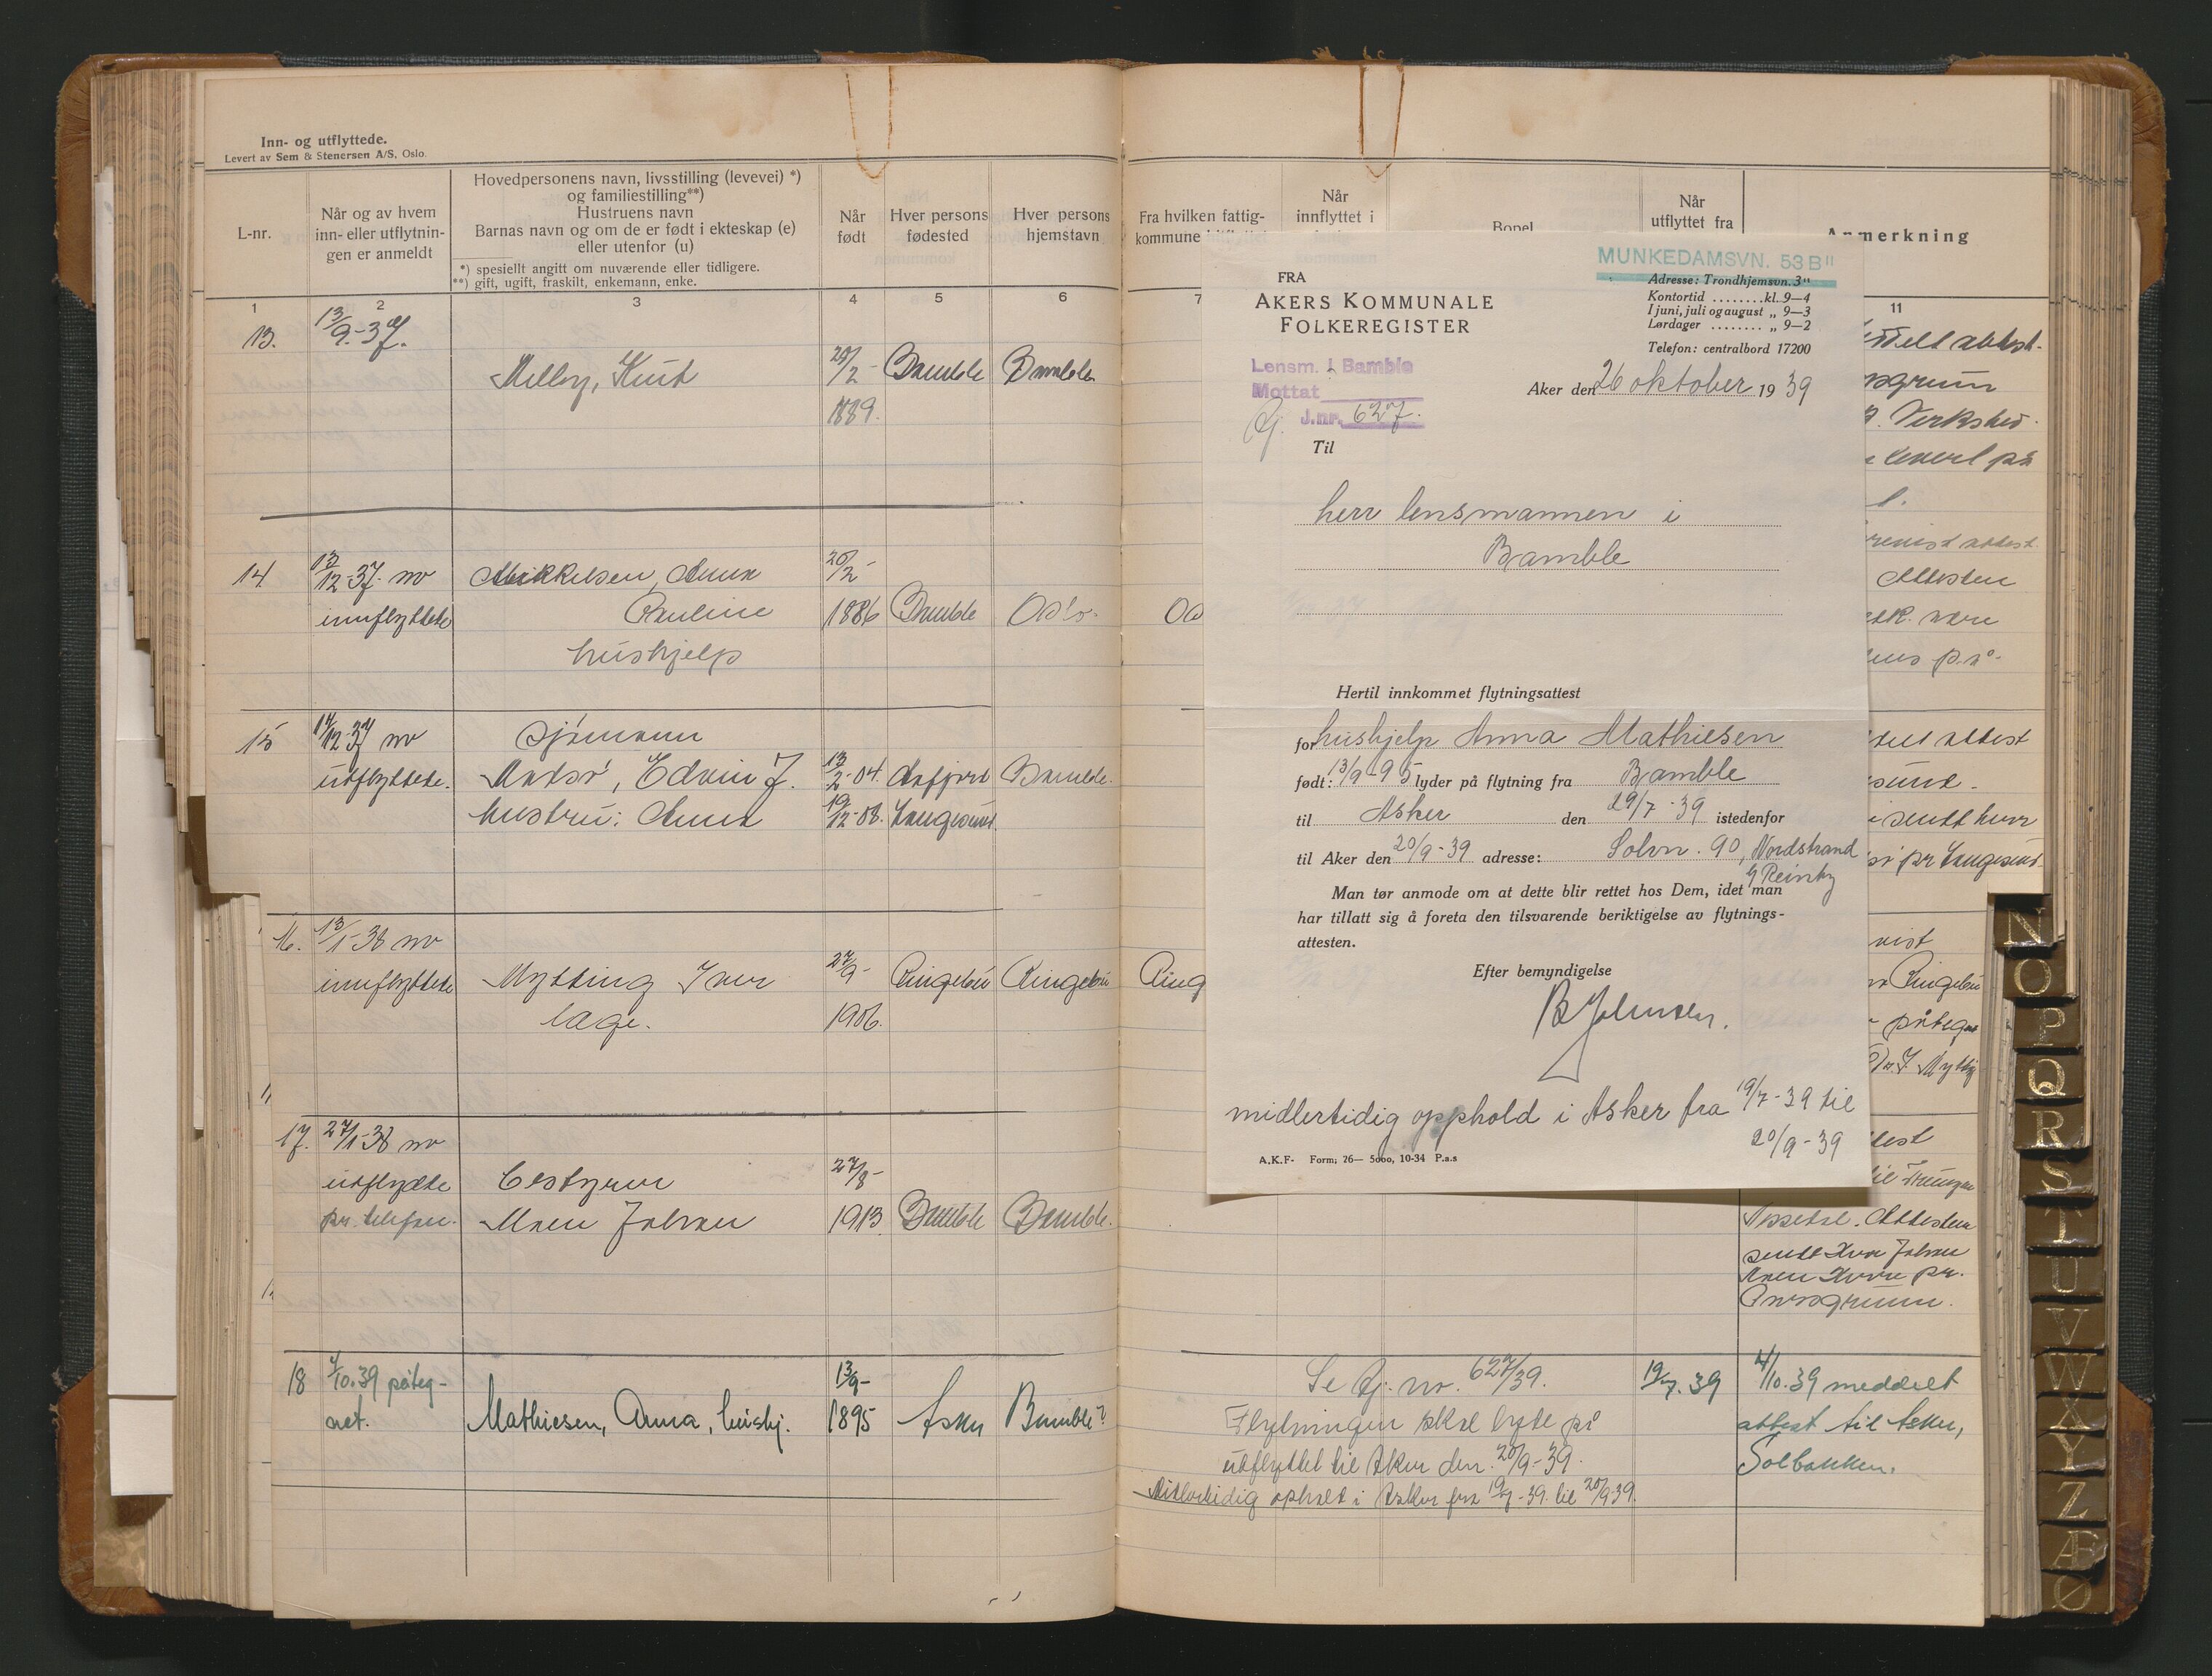 Inn- og utflyttede.
Levert av Sem & Stenersen A/S, Oslo.
L-nr.
Når og av hvem
inn- eller utflytnin-
gen er anmeldt
Hovedpersonens navn, livsstilling (levevei) *)
og familiestilling**)
Hustruens navn
Barnas navn og om de er født i ekteskap (e)
eller utenfor (u)
*) spesiellt angitt om nuværende eller tidligere.
**) gift, ugift, fraskilt, enkemann, enke.
Når
født
Hver persons
fødested
Hver persons
hjemstavn
1 2 3 4 5 6
13. 13/9-37.
Melby, Knut 29/2- Bamble Bamble
1889.
14 13/12-37 nv Mikkelsen, Anna 20/2-
innflyttede Pauline 1886 Bamble Oslo.
hushjelp
15 14/12-37 nv Sjømann
utflyttede. Edvin J. 13/2-04. Bamble.
hustru: Anna 19/12-08. Langesund.
16. 13/1-38 nv
innflyttede Mytting Iver 27/9- Ringebu Ringebu
læge. 1906.
17. 27/1-38 nv
utflyttede bestyrer 27/8-
pr. telefon. Maren Johan 1913 Bamble Bamble.
18 4/10.39 påteg- 13/9-
net. Mathiesen, Anna, hushj. 1895 Asker Bamble?
Fra hvilken fattig-
kommune
Når
innflyttet i
Bopel
Når
utflyttet fra
Anmerkning
7 11
attest.
Verksted
levert på
attest
Attesten
være
attest
sendt herr
pr Langesund
Ringebu
påtegnet
Attesten
sendt Johan
pr.
Porsgrunn.
Se Gj. nr. 627/39. 19/7.39 4/10.39 meddelt
Flytningen skal lyde på attest til Asker,
utflyttet til Aker den 20/9-39. Solbakken.
Midlertidig ophold i Asker fra 19/7-39 til 20/9-39.
FRA
AKERS KOMMUNALE
FOLKEREGISTER
MUNKEDAMSVN. 53 B"
Adresse: Trondhjemsvn. 3"
Kontortid ........ kl. 9—4
I juni, juli og august „ 9—3
Lørdager ........ „ 9—2
Telefon: centralbord 17200
Lensm. i Bamble
Mottat
J.nr. 627.
Aker den 26 oktober 1939
Til
herr lensmannen i
Bamble
Hertil innkommet flytningsattest
for hushjelp Anna Mathiesen
født: 13/9-95 lyder på flytning fra Bamble
til Asker den 29/7-39 istedenfor
til Aker den 20/9-39 adresse: Solvn. 90, Nordstrand
Man tør anmode om at dette blir rettet hos Dem, idet man
har tillatt sig å foreta den tilsvarende beriktigelse av flytnings-
attesten.
Efter bemyndigelse
B Johnsen.
midlertidig opphold i Asker fra 19/7-39 til
20/9-39
A.K.F- Form; 26— 5000, 10-34 P.a.s
N
O
P
Q
R
S
T
U
V
W
X
Y
Z
Æ
Ø